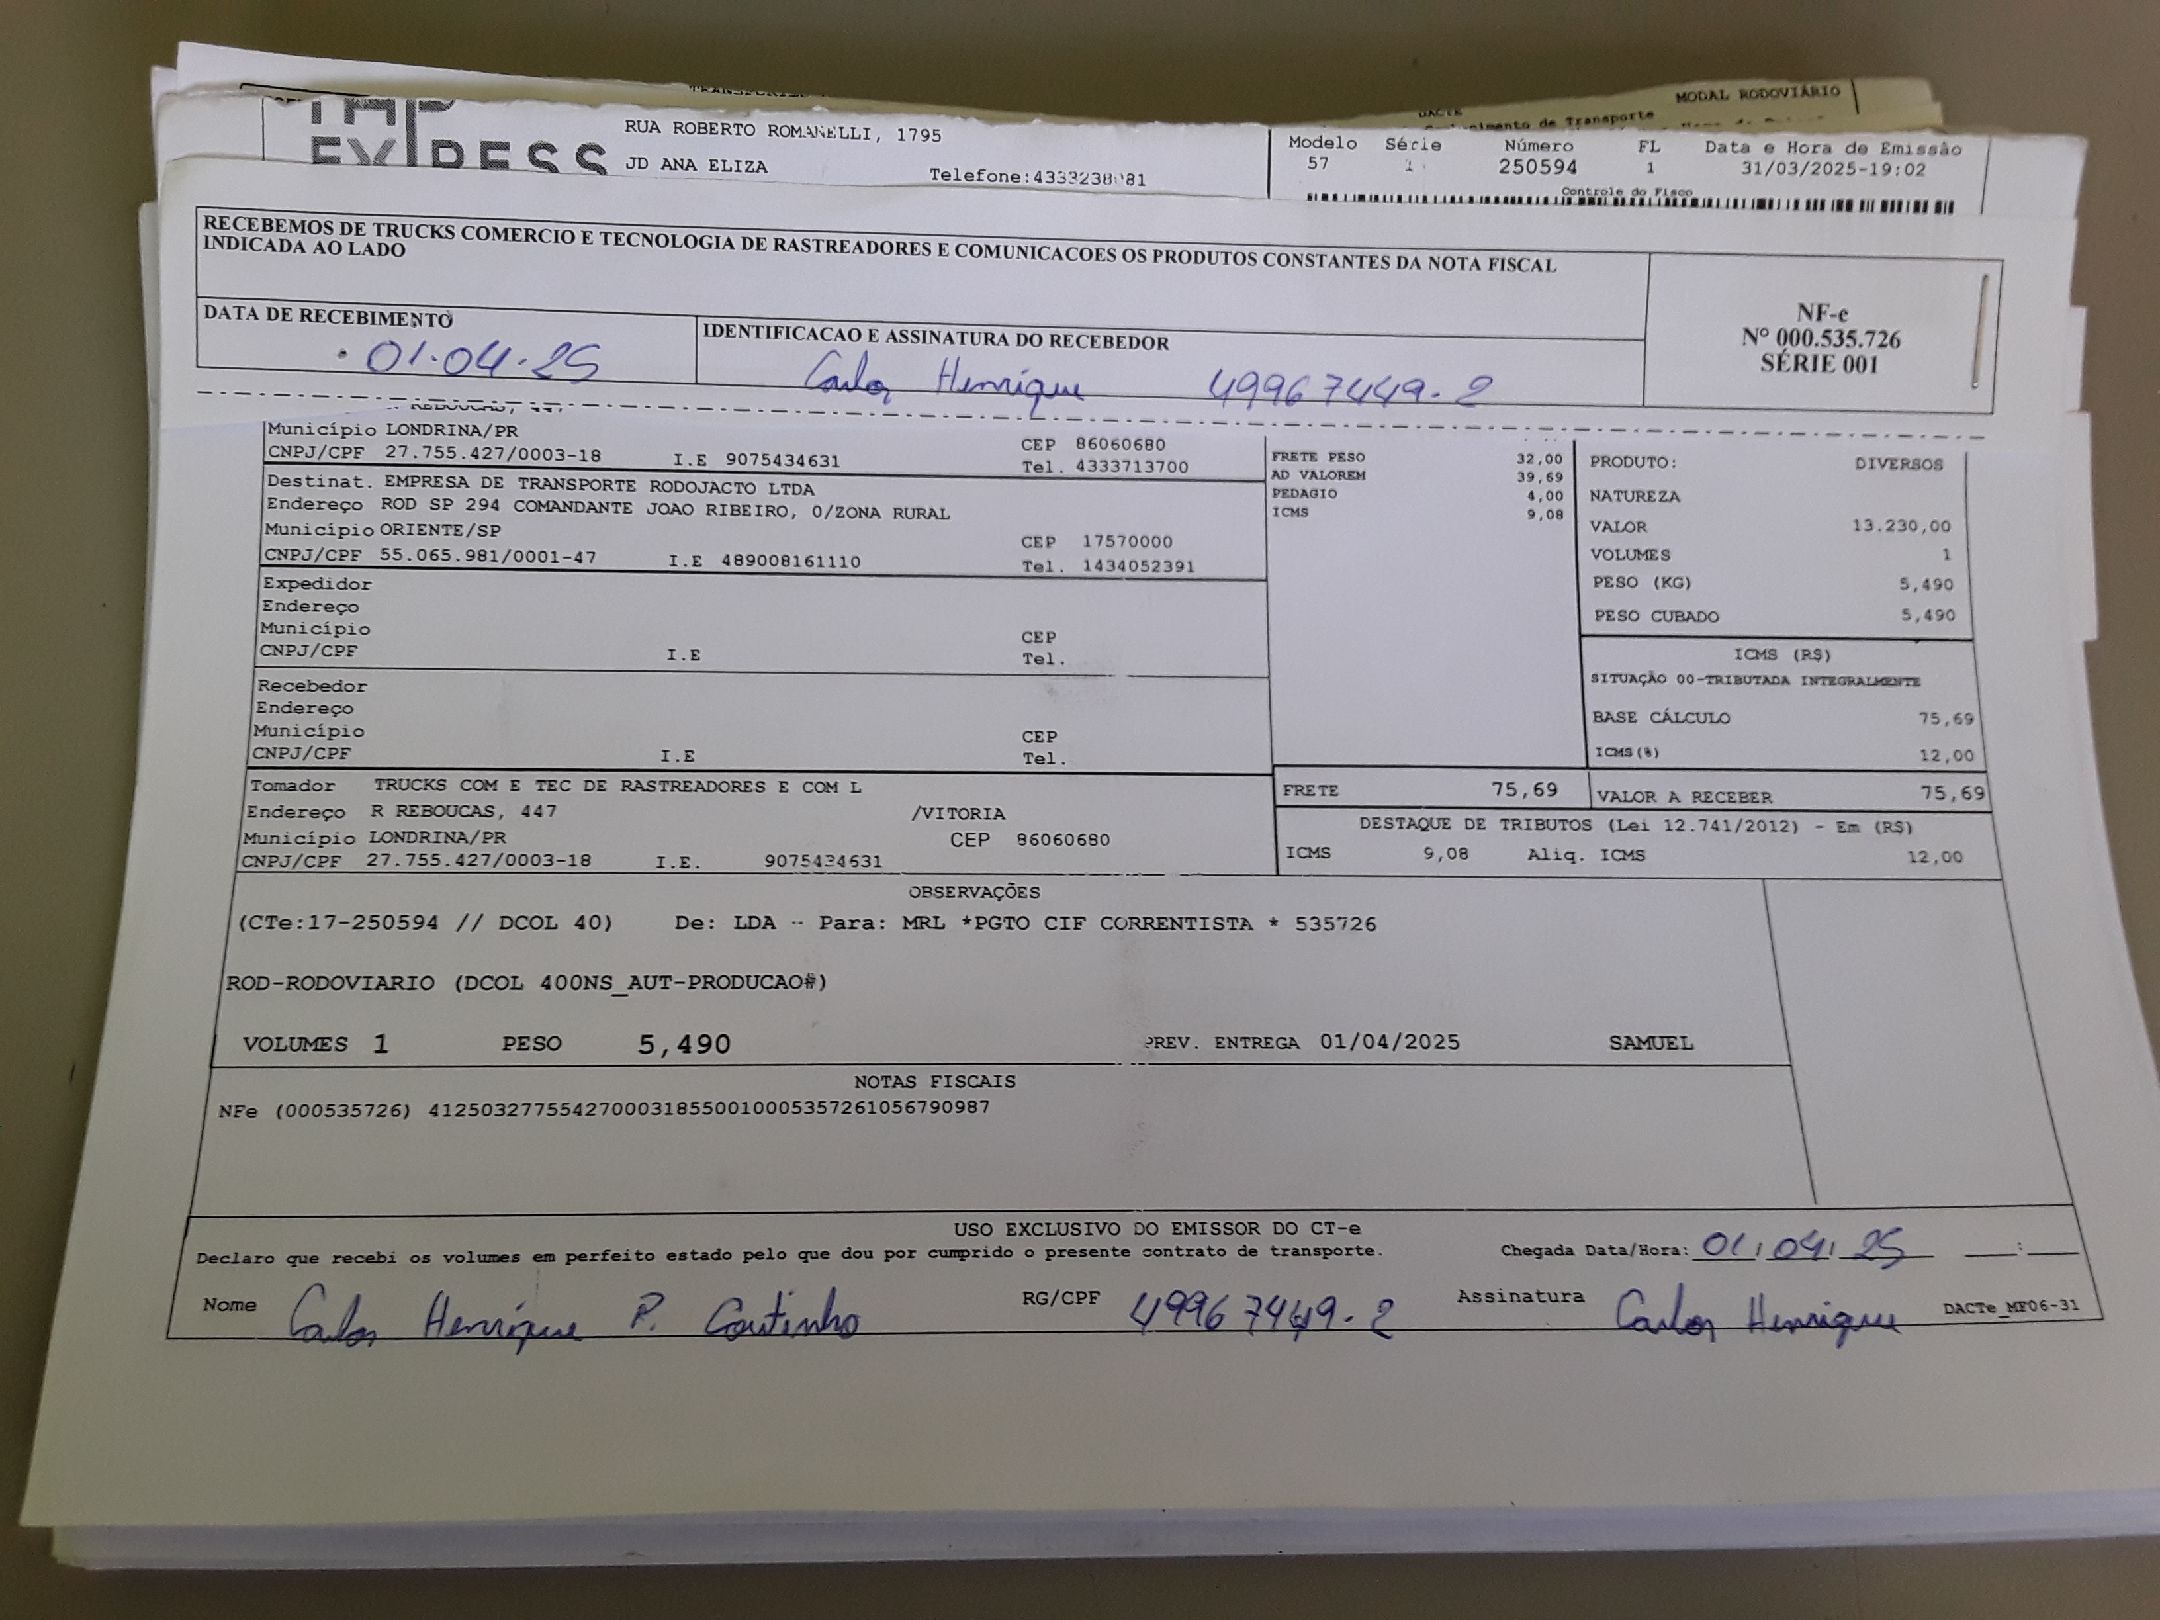 MODAL RODOVIÁRIO
DACTE
de Transporte
EXPRESS
RUA ROBERTO ROMANELLI, 1795
JD ANA ELIZA
Modelo Série Número FL Data e Hora de Emissão
57 250594 1 31/03/2025-19:02
Controle do Fisco
RECEBEMOS DE TRUCKS COMERCIO E TECNOLOGIA DE RASTREADORES E COMUNICACOES OS PRODUTOS CONSTANTES DA NOTA FISCAL
INDICADA AO LADO
DATA DE RECEBIMENTO
01.04.25
IDENTIFICACAO E ASSINATURA DO RECEBEDOR
Carlos Henrique 49967449-2
NF-e
Nº 000.535.726
SÉRIE 001
Município LONDRINA/PR CEP 86060680
CNPJ/CPF 27.755.427/0003-18 I.E 9075434631 Tel. 4333713700
Destinat. EMPRESA DE TRANSPORTE RODOJACTO LTDA
Endereço ROD SP 294 COMANDANTE JOAO RIBEIRO, 0/ZONA RURAL
Município ORIENTE/SP CEP 17570000
CNPJ/CPF 55.065.981/0001-47 I.E 489008161110 Tel. 1434052391
Expedidor
Endereço
Município CEP
CNPJ/CPF I.E Tel.
Recebedor
Endereço
Município CEP
CNPJ/CPF I.E Tel.
Tomador TRUCKS COM E TEC DE RASTREADORES E COM L
Endereço R REBOUCAS, 447 /VITORIA
Município LONDRINA/PR CEP 86060680
CNPJ/CPF 27.755.427/0003-18 I.E. 9075434631
FRETE PESO 32,00
AD VALOREM 39,69
PEDAGIO 4,00
ICMS 9,08
PRODUTO: DIVERSOS
NATUREZA
VALOR 13.230,00
VOLUMES 1
PESO (KG) 5,490
PESO CUBADO 5,490
ICMS (R$)
SITUAÇÃO 00-TRIBUTADA INTEGRALMENTE
BASE CÁLCULO 75,69
ICMS(%) 12,00
FRETE 75,69 VALOR A RECEBER 75,69
DESTAQUE DE TRIBUTOS (Lei 12.741/2012) - Em (R$)
ICMS 9,08 Aliq. ICMS 12,00
OBSERVAÇÕES
(CTe:17-250594 // DCOL 40) De: LDA - Para: MRL *PGTO CIF CORRENTISTA * 535726
ROD-RODOVIARIO (DCOL 400NS_AUT-PRODUCAO#)
VOLUMES 1 PESO 5,490 PREV. ENTREGA 01/04/2025 SAMUEL
NOTAS FISCAIS
NFe (000535726) 41250327755427000318550010005357261056790987
USO EXCLUSIVO DO EMISSOR DO CT-e
Declaro que recebi os volumes em perfeito estado pelo que dou por cumprido o presente contrato de transporte. Chegada Data/Hora: 01/04/25 __:__
Nome Carlos Henrique P. Coutinho RG/CPF 49967449-2 Assinatura Carlos Henrique DACTe_MF06-31